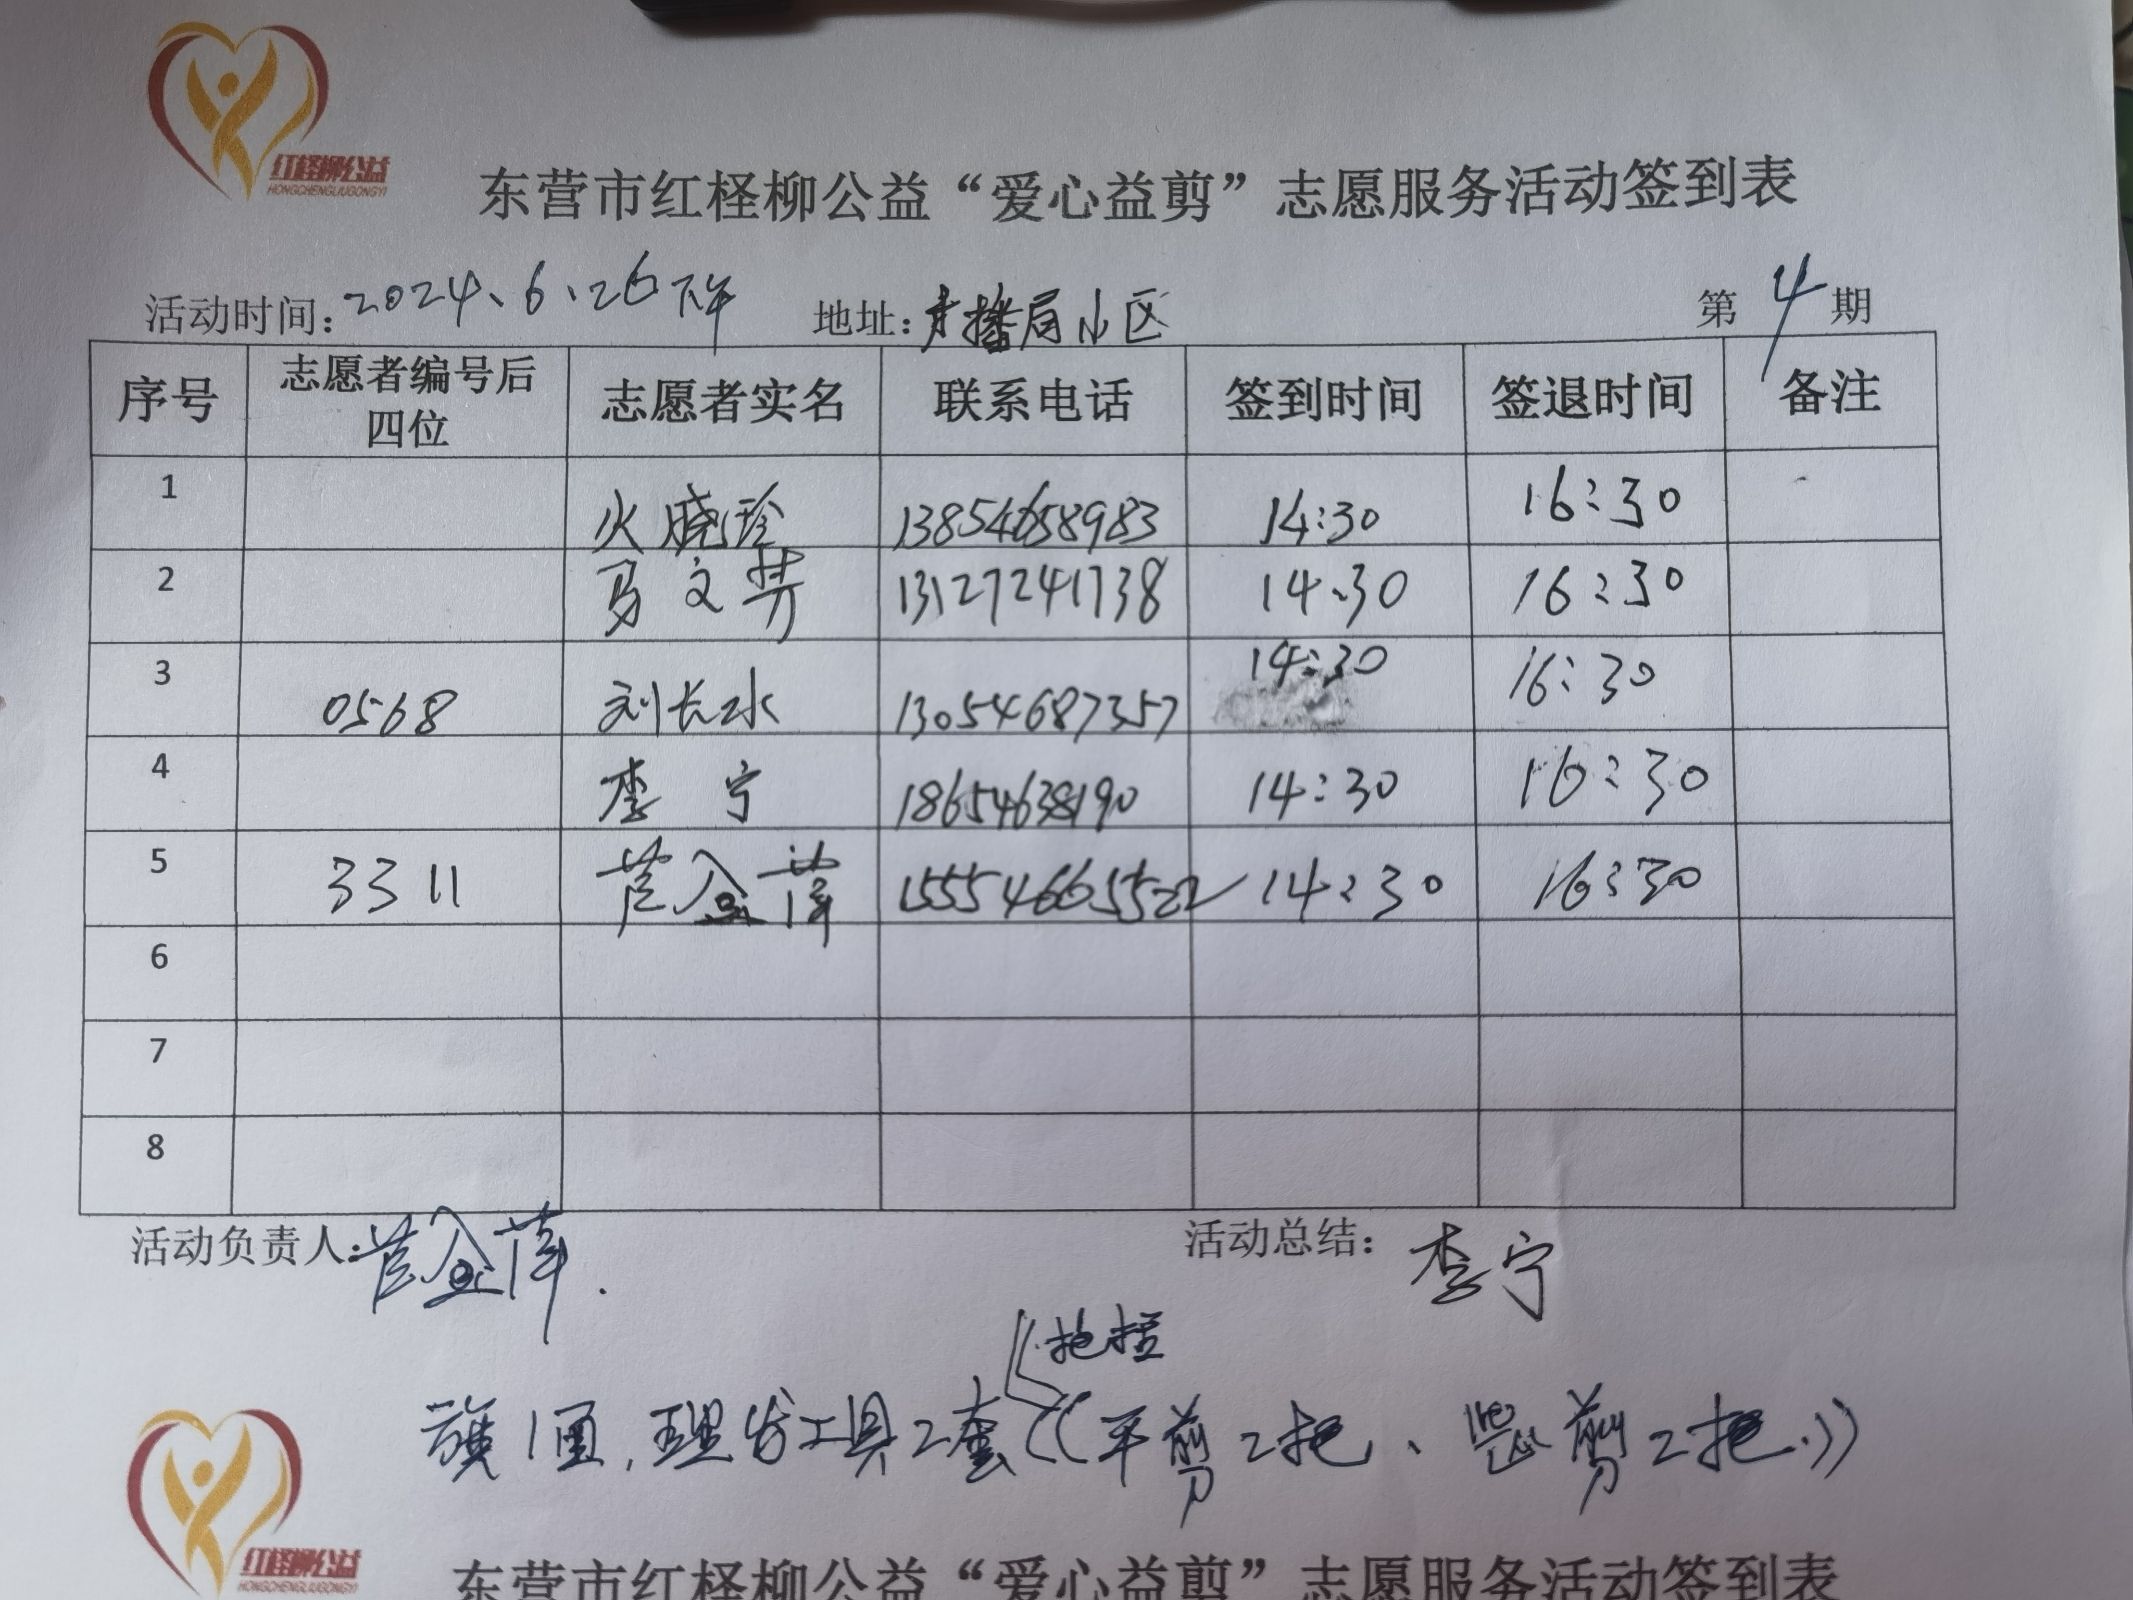 红柽柳公益
HONGCHENGLIUGONGYI
东营市红柽柳公益“爱心益剪”志愿服务活动签到表
活动时间：2024、6、26下午 地址：广播局小区 第4期
序号 志愿者编号后四位 志愿者实名 联系电话 签到时间 签退时间 备注
1 火晓玲 13854658983 14:30 16:30
2 马文芳 13127241738 14:30 16:30
3 0568 刘长水 13054687357 14:30 16:30
4 李宁 18654638190 14:30 16:30
5 3311 萍 15554665522 14:30 16:30
6
7
8
活动负责人：萍. 活动总结：李宁
包括
旗1面，理发工具2套（（平剪2把、剪2把.））
红柽柳公益
HONGCHENGLIUGONGYI
东营市红柽柳公益“爱心益剪”志愿服务活动签到表